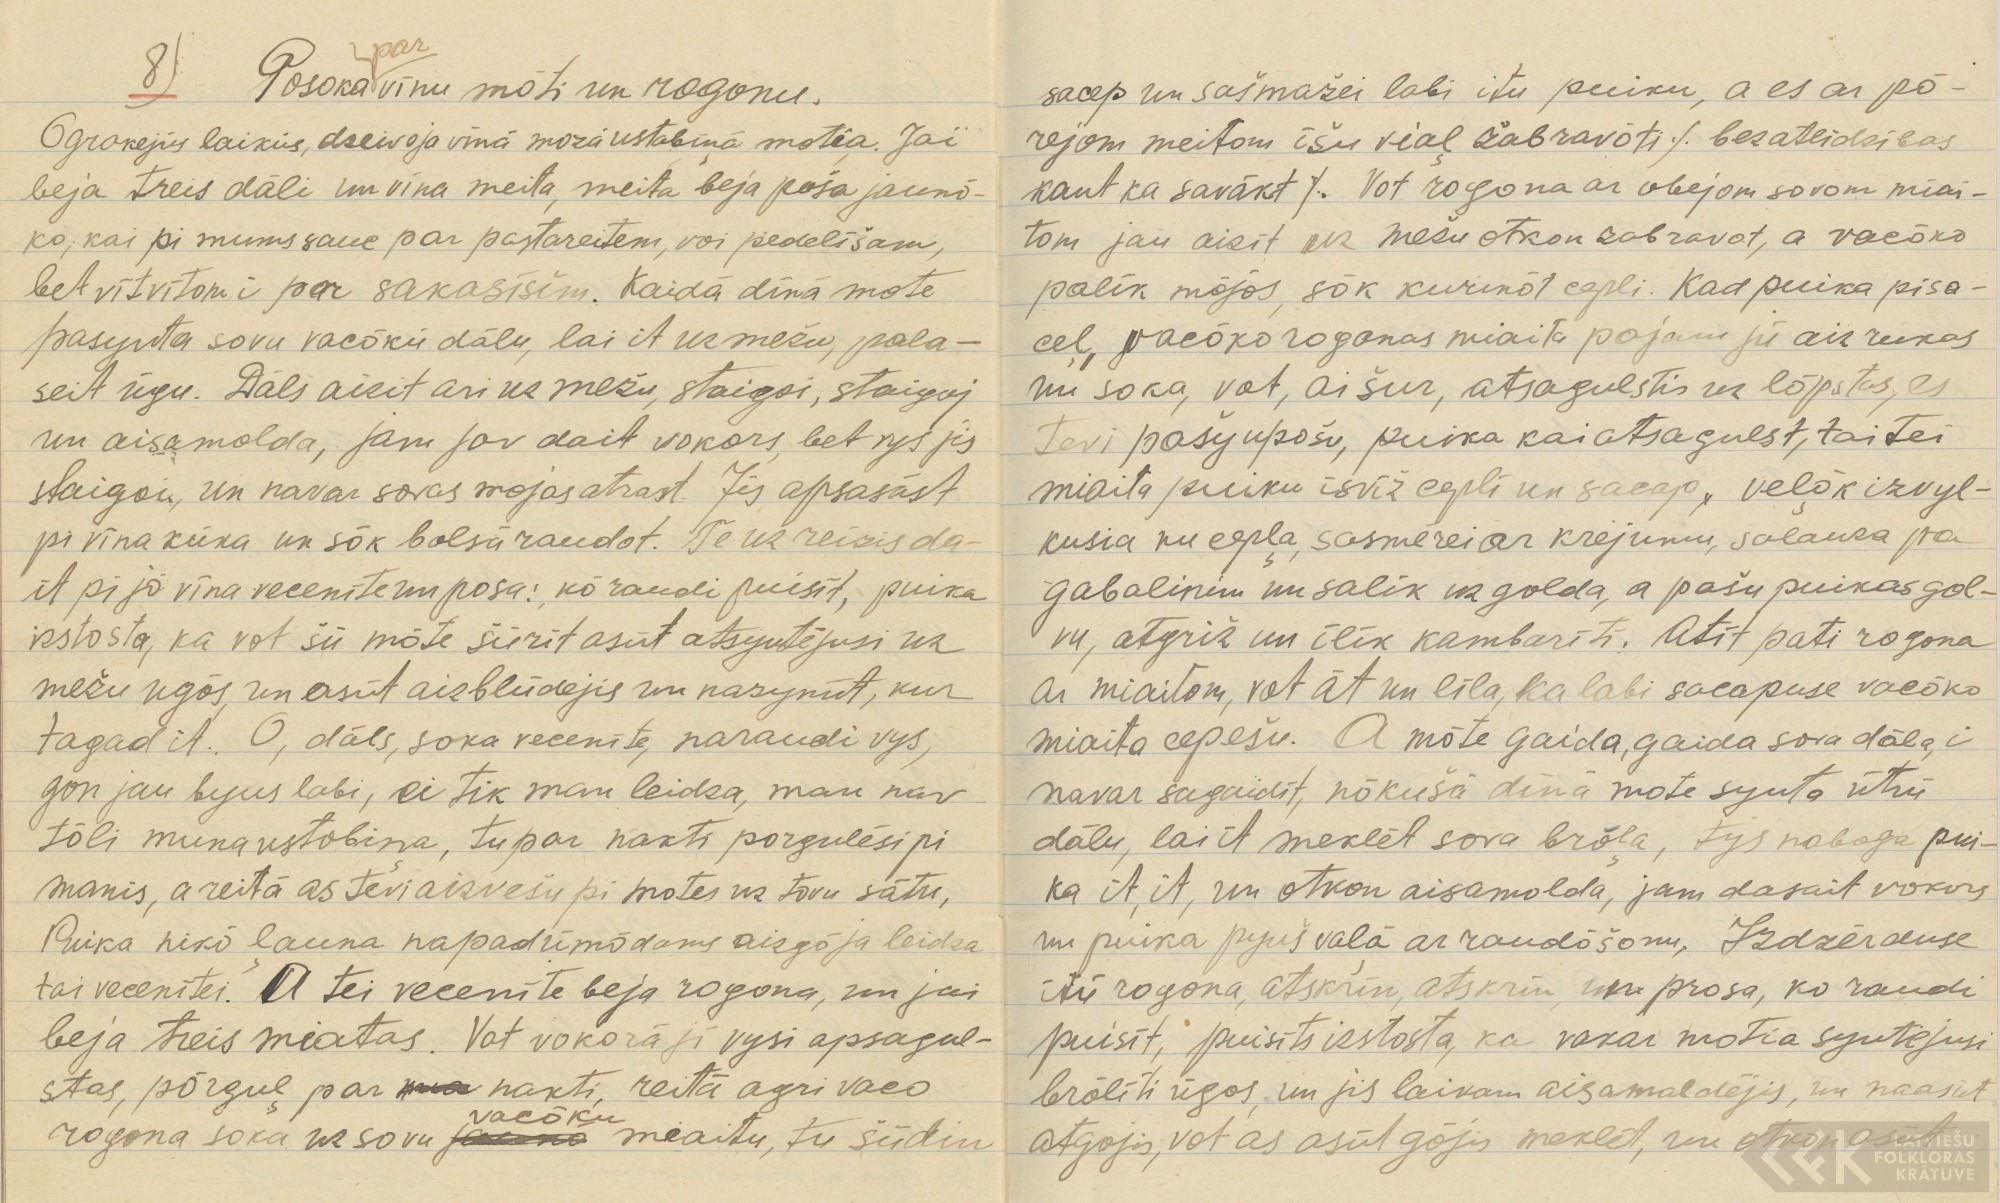 8) Posoka par vīnu mōti un rogonu.
Ogrokejūs laikūs, dzeivoja vīnā mozā ustabiņā motia. Jai
beja treis dāli un vīna meita, meita beja poša jaunō-
ko, kai pi mums sauc par pastareitem, voi pedelīšam,
bet vītvītom i par sakasīšim. Kaidā dīnā mote
pasyuta sovu vacōkū dālu, lai it uz mežu, pala-
seit ūgu. Dāls aizit ari uz mežu, staigoi, staigoj
un aisamolda, jam jov dait vokors, bet vys jis
staigoi, un navar sovas mojas atrast. Jis apsasāst
pi vīna kūka un sōk bolsū raudot. Te uz reizis da-
it pi jō vīna vecenīte un posa: kō raudi puisīt, puika
izstosta, ka vot šū mōte šūrīt asūt atsyutējusi uz
mežu ugōs, un asūt aizblūdejis un nazynūt, kur
tagad it. O, dāls, soka vecenīte, naraudi vys,
gon jau byus labi, ei tik man leidza, man nav
tōli muna ustobiņa, tu par nakti porgulēsi pi
manis, a reitā as tevi aizvešu pi motes uz tovu sātu,
Puika nikō ļauna napadūmōdams aizgōja leidza
tai vecenītei. A tei vecenīte beja rogona, un jai
beja treis miatas. Vot vokorā jī vysi apsagul-
stas, pōrguļ par nakti, reitā agri vaco
rogona soka uz sovu vacōku meaitu, tu šūdin
sacep un sašmažei labi itu puiku, a es ar pō-
rejom meitom īšu vial žabravōti ./. bezatlīdzības
kaut ka savākt ./. Vot rogona ar obejom sovom miai-
tom jau aizit uz mežu otkon žabravot, a vacōko
palīk mōjōs, sōk kurinōt cepli. Kad puika pīsa-
ceļ, vacōko rogonas miaita pajam jū aiz rukas
un soka, vot, ai šur, atsagulstis uz lōpstas, es
tevi pašyupošu, puika kai atsagulst, tai tei
miaita puiku īsvīž ceplī un sacap, velōk izvyl-
kusia nu cepļa, sasmērei ar krējumu, salauza pa
gabalinim un salīk uz golda, a pašu puikas gol-
vu, atgrīž un īlīk kambarīti. Atīt pati rogona
ar miaitom, vot āt un līla, ka labi sacapuse vacōko
miaita cepešu. A mōte gaida, gaida sova dāla, i
navar sagaidīt, nōkušā dīnā mote syuta ūtrū
dālu, lai īt meklēt sova brōļa, tys nabaga pui-
ka it, it, un otkon aisamolda, jam dasait vokors
un puika pyuš vaļā ar raudōšonu, Izdzērduse
itū rogona, atskrīn, atskrīn un prosa, ko raudi
puisīt, puisīts izstosta, ka vakar motia syutejusi
brōlīti ūgos, un jis laikam aisamaldējis, un naasūt
atgojis, vot as asūt gōjis meklēt, un otkon asūt
LATVIEŠU
FOLKLORAS
KRĀTUVE